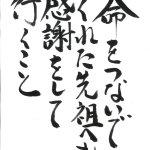 命をつないで
くれた先祖へも
感謝をして
行くこと